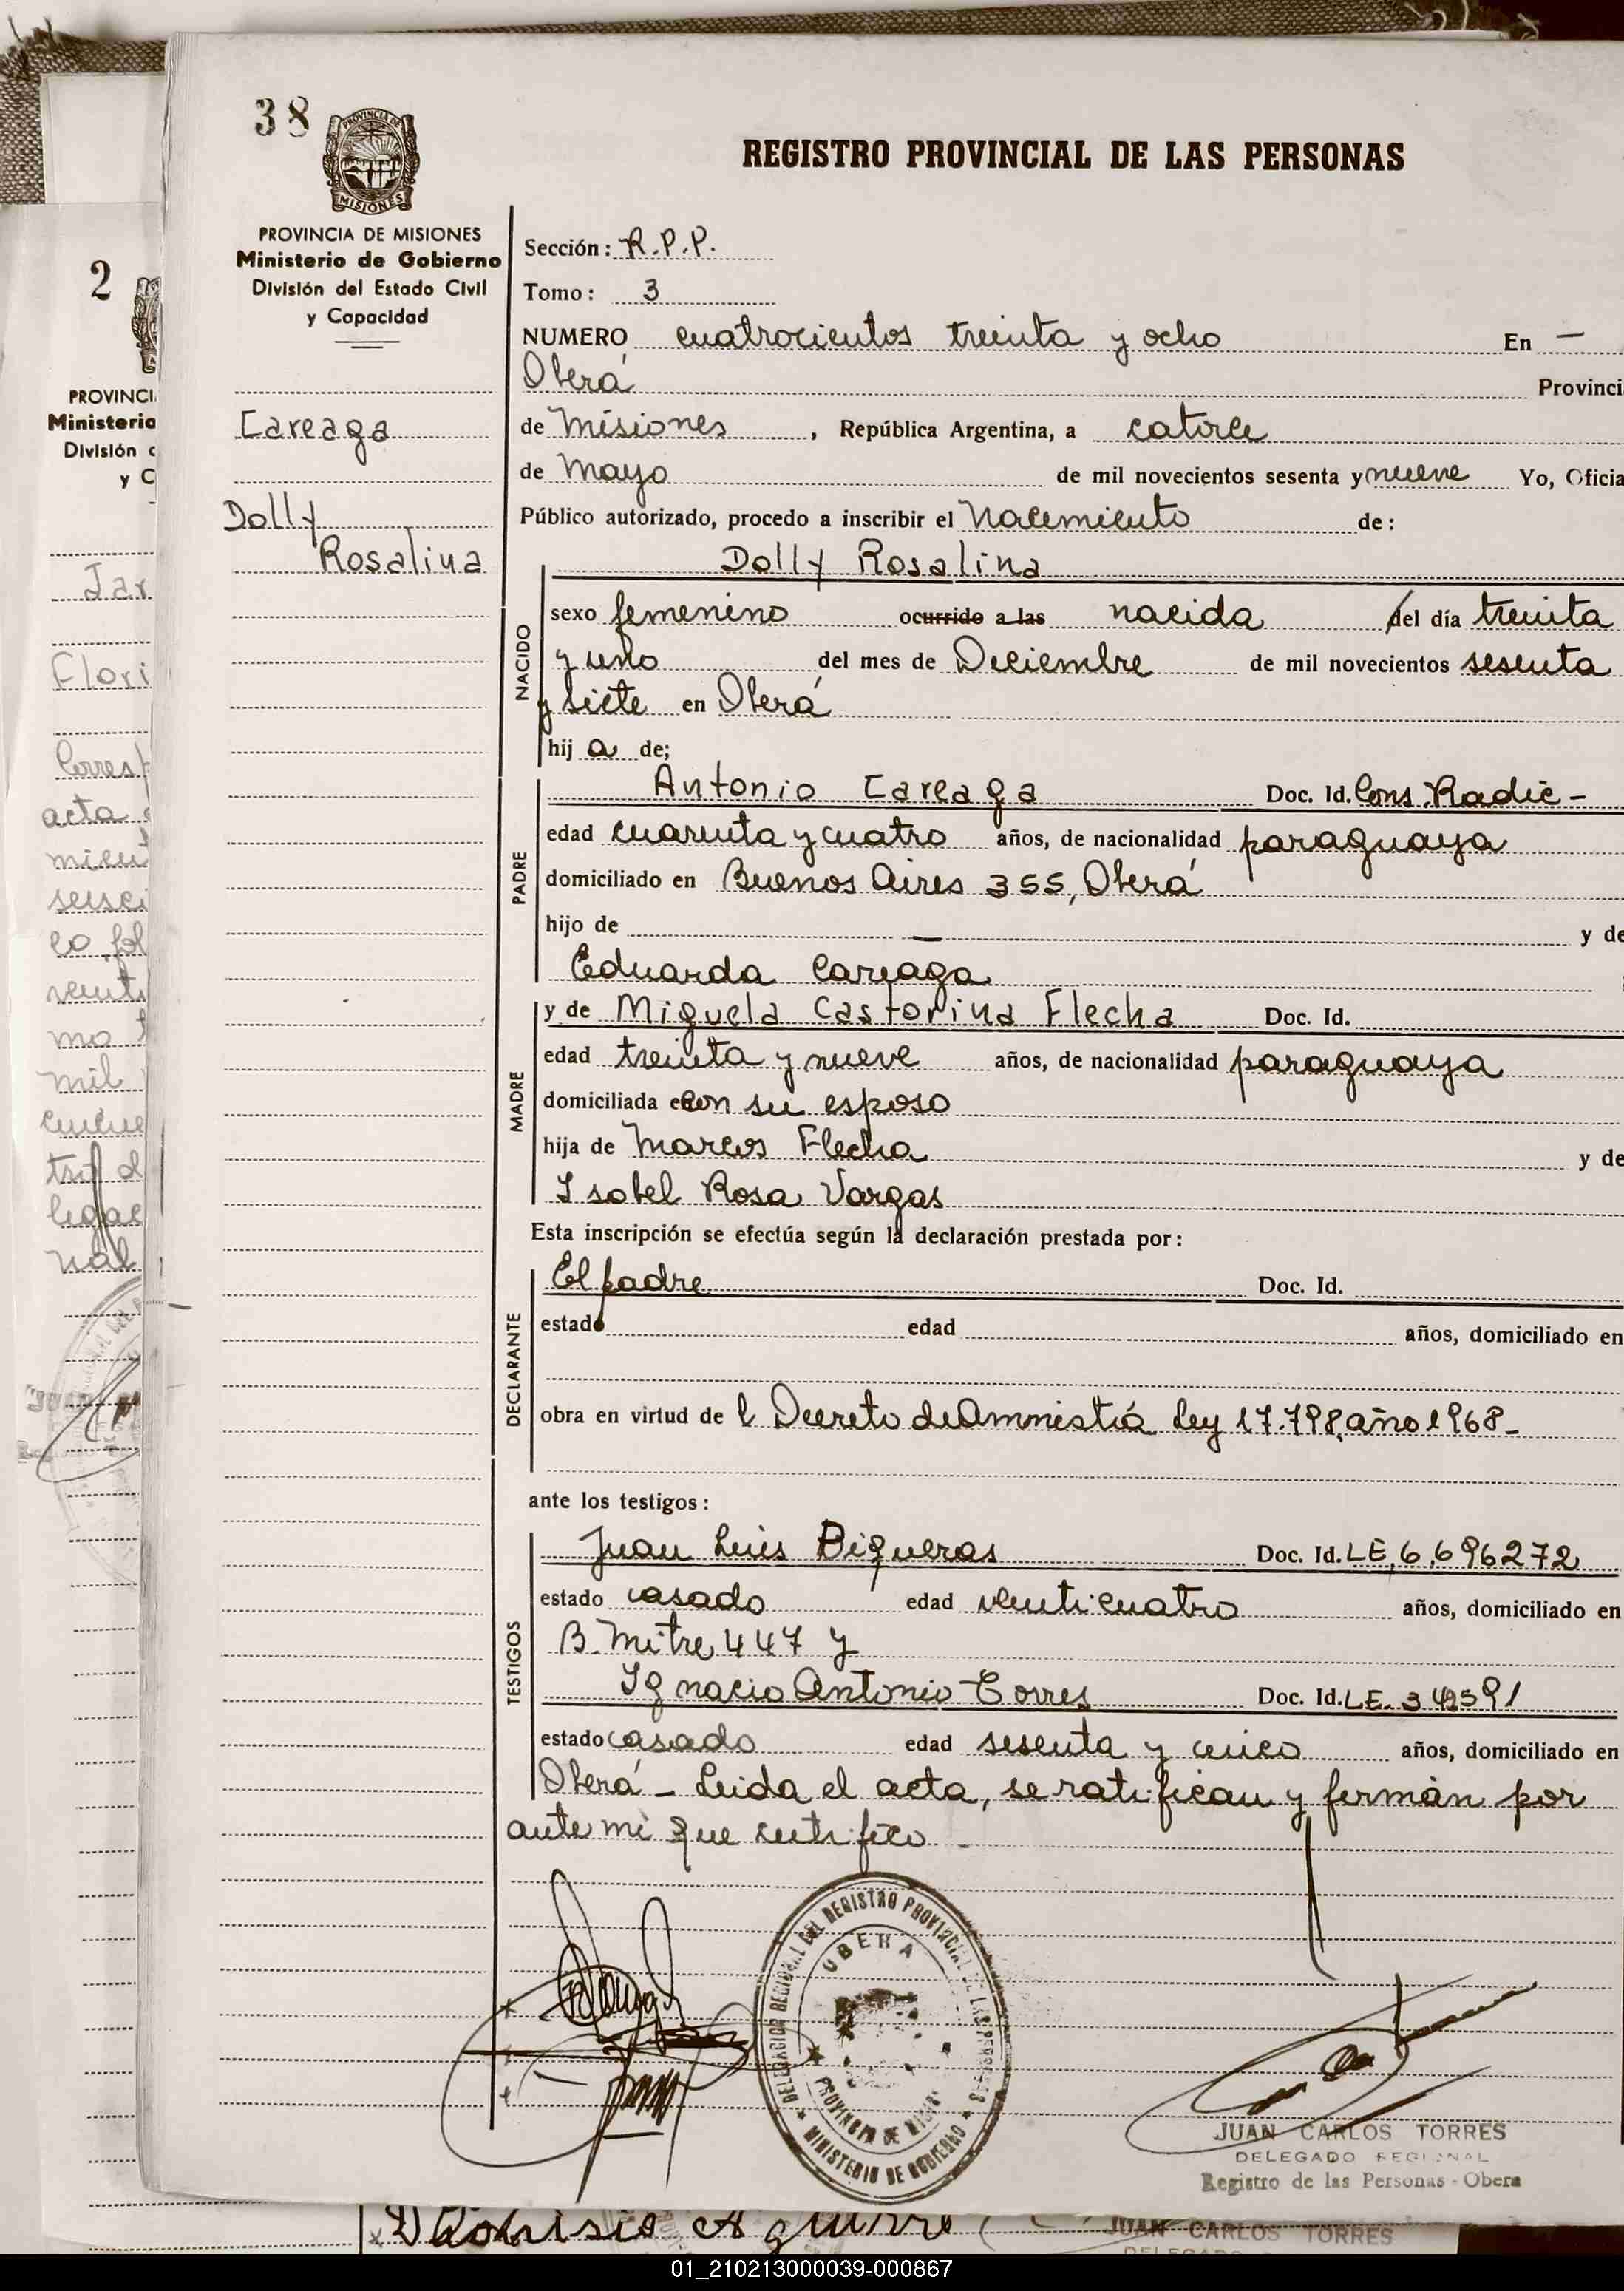 38
PROVINCIA DE MISIONES
MISIONES
REGISTRO PROVINCIAL DE LAS PERSONAS
PROVINCIA DE MISIONES
Ministerio de Gobierno
División del Estado Civil
y Capacidad
Careaga
Dolly
Rosalina
Sección: R.P.P.
Tomo: 3
NUMERO cuatrocientos treinta y ocho En —
Oberá Provinci
de Misiones, República Argentina, a catorce
de Mayo de mil novecientos sesenta y nueve Yo, Oficia
Público autorizado, procedo a inscribir el Nacimiento de:
Dolly Rosalina
NACIDO
sexo femenino ocurrido a las nacida del día treinta
y uno del mes de Diciembre de mil novecientos sesenta
y siete en Oberá
hija de;
PADRE
Antonio Careaga Doc. Id. Cons. Radic-
edad cuarenta y cuatro años, de nacionalidad paraguaya
domiciliado en Buenos Aires 355, Oberá
hijo de — y de
Eduarda Careaga
MADRE
y de Miguela Castorina Flecha Doc. Id.
edad treinta y nueve años, de nacionalidad paraguaya
domiciliada con su esposo
hija de Marcos Flecha y de
Isabel Rosa Vargas
Esta inscripción se efectúa según la declaración prestada por:
DECLARANTE
El padre Doc. Id.
estado edad años, domiciliado en
obra en virtud de l Decreto de Amnistía Ley 17.798, año 1968-
ante los testigos:
TESTIGOS
Juan Luis Piqueras Doc. Id. LE, 6,696272
estado casado edad venticuatro años, domiciliado en
B. Mitre 447 y
Ignacio Antonio Torres Doc. Id. LE. 342591
estado casado edad sesenta y cinco años, domiciliado en
Oberá - Leida el acta, se ratifican y firman por
ante mi que certifico -
DELEGACION REGIONAL DEL REGISTRO PROVINCIAL DE LAS PERSONAS
OBERA
PROVINCIA DE
MINISTERIO DE GOBIERNO
JUAN CARLOS TORRES
DELEGADO REGIONAL
Registro de las Personas - Obera
2
PROVINCI
Ministerio
División
y C
Jar
Flori
Corresp
acta
mien
mo
mil
nal
JUAN CARLOS TORRES
01_210213000039-000867